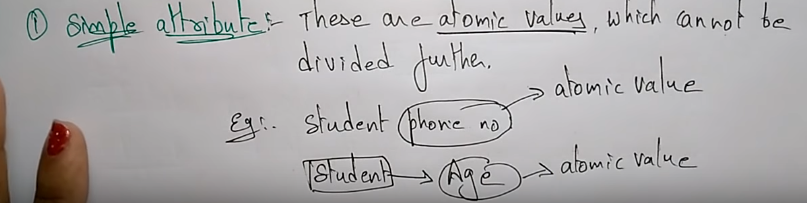 ① Simple attribute:- These are atomic values, which cannot be
divided further.
Eg:- Student phone no → atomic value
Student → Age → atomic value